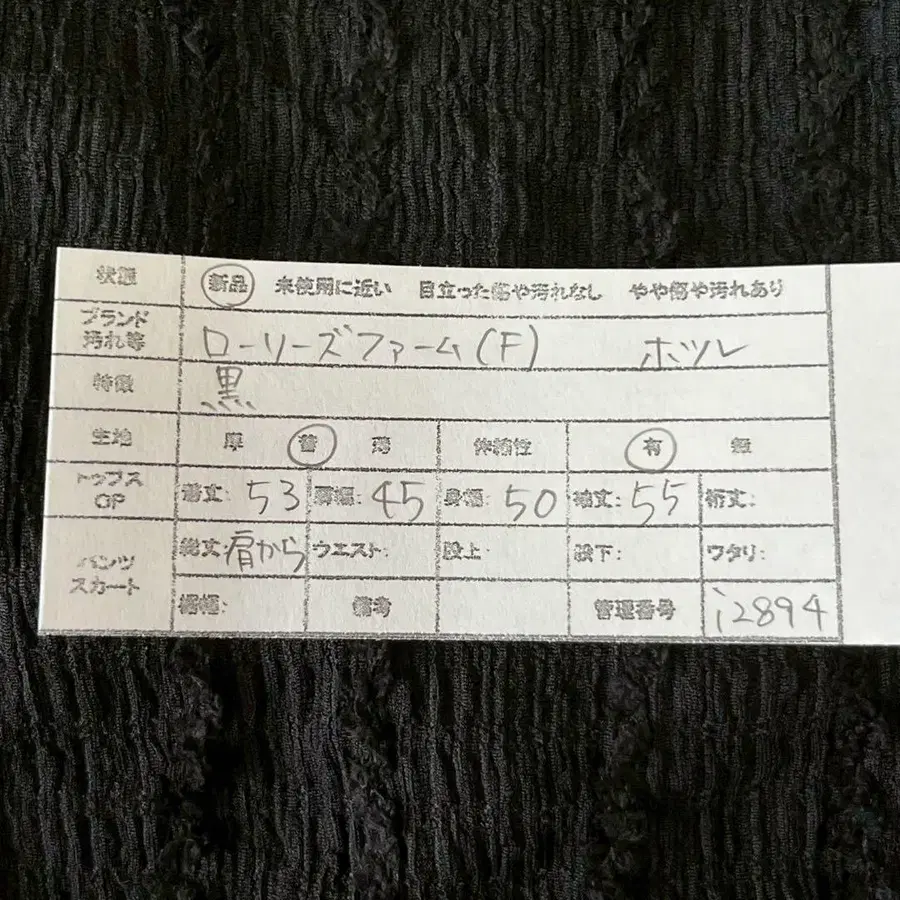 状態 新品 未使用に近い 目立った傷や汚れなし やや傷や汚れあり
ブランド
汚れ等 ローリーズファーム(F) ホツレ
特徴 黒
生地 厚 普 薄 伸縮性 有 無
トップス
OP 着丈: 53 肩幅: 45 身幅: 50 袖丈: 55 裄丈:
パンツ
スカート 総丈 肩から ウエスト: 股上: 股下: ワタリ:
裾幅: 備考 管理番号 i2894